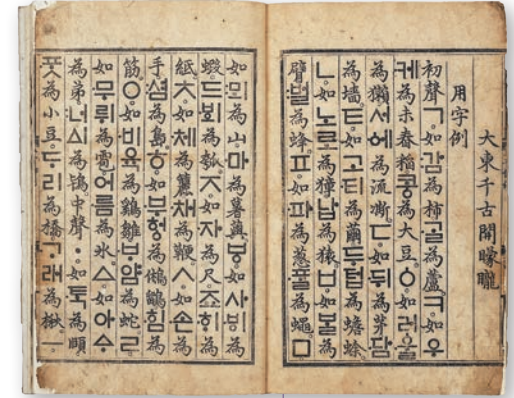 大東千古開矇矓
用字例
初聲ㄱ如감為柿ᄀᆞᆯ為蘆ㅋ如우
케為未舂稻콩為大豆ㆁ如러울
為獺서에為流凘ㄷ如뒤為茅담
為墻ㅌ如고티為繭두텁為蟾蜍
ㄴ如노로為獐납為猿ㅂ如ᄇᆞᆯ為
臂벌為蜂ㅍ如파為葱ᄑᆞᆯ為蠅ㅁ
如뫼為山마為薯藇ㅸ如사ᄫᅵ為
蝦드ᄫᅴ為瓠ㅈ如자為尺죠ᄒᆡ為
紙ㅊ如체為簁채為鞭ㅅ如손為
手셤為島ㅎ如부헝為鵂鶹힘為
筋ㅇ如비육為鷄雛ᄇᆞ얌為蛇ㄹ
如무뤼為雹어름為氷ㅿ如아ᅀᆞ
為弟너ᅀᅵ為鴇中聲ㆍ如ᄐᆞᆨ為頤
ᄑᆞᆺ為小豆ᄃᆞ리為橋ᄀᆞ래為楸ㅡ